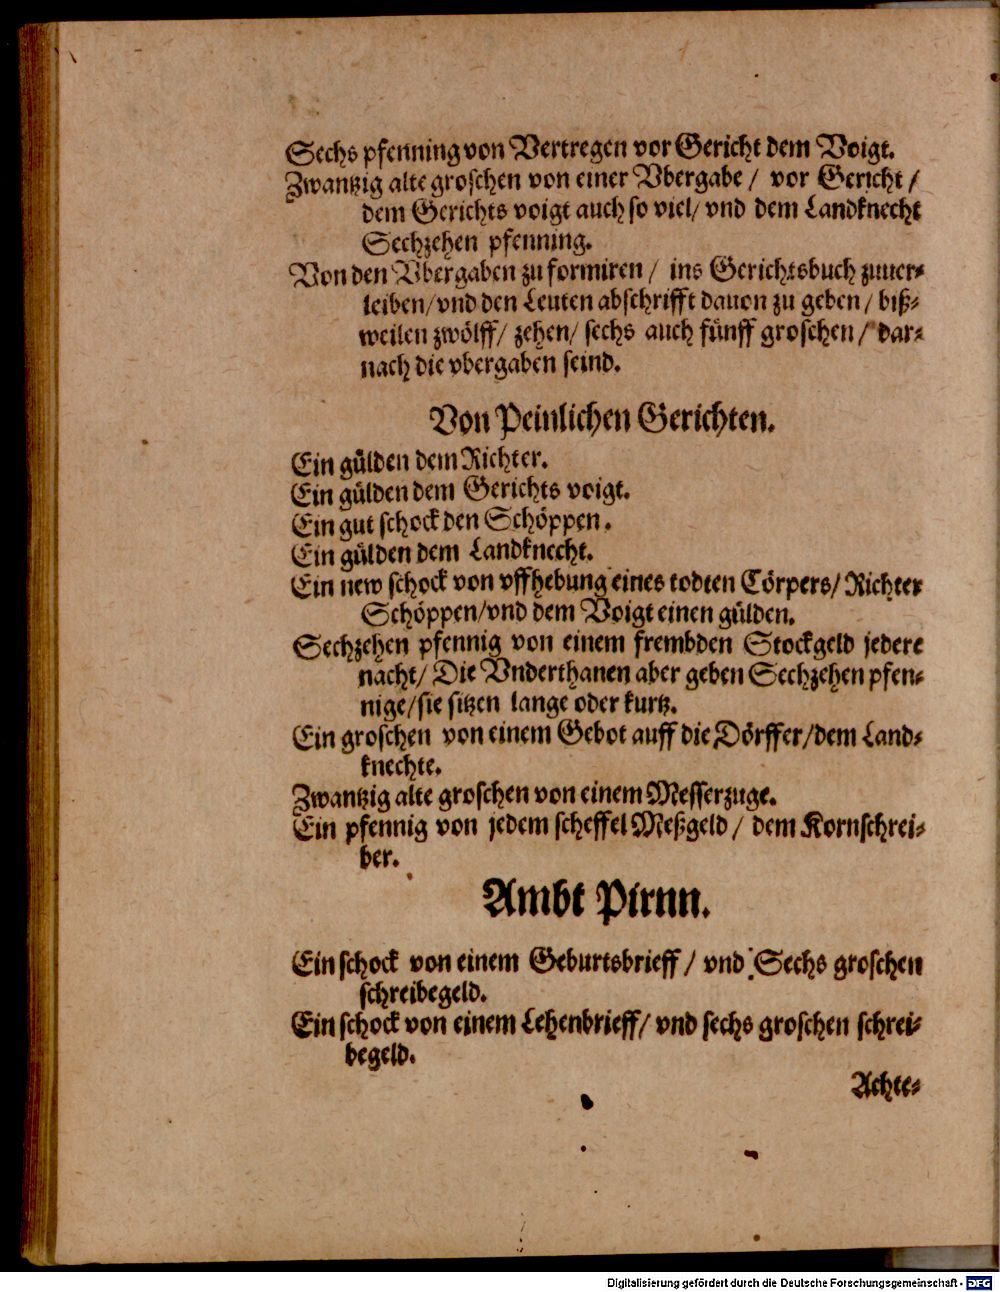 Sechs pfenning von Vertregen vor Gericht dem Voigt.
Zwantzig alte groschen von einer Vbergabe / vor Gericht /
dem Gerichts voigt auch so viel / vnd dem Landknecht
Sechzehen pfenning.
Von den Vbergaben zu formiren / ins Gerichtsbuch zuuer-
leiben / vnd den Leuten abschrifft dauon zu geben / biß-
weilen zwölff / zehen / sechs auch fünff groschen / dar-
nach die vbergaben seind.
Von Peinlichen Gerichten.
Ein gülden dem Richter.
Ein gülden dem Gerichts voigt.
Ein gut schock den Schöppen.
Ein gülden dem Landknecht.
Ein new schock von vffhebung eines todten Cörpers / Richter
Schöppen / vnd dem Voigt einen gülden.
Sechzehen pfennig von einem frembden Stockgeld jedere
nacht / Die Vnderthanen aber geben Sechzehen pfen-
nige / sie sitzen lange oder kurtz.
Ein groschen von einem Gebot auff die Dörffer / dem Land-
knechte.
Zwantzig alte groschen von einem Messerzuge.
Ein pfennig von jedem scheffel Meßgeld / dem Kornschrei-
ber.
Ambt Pirnn.
Ein schock von einem Geburtsbrieff / vnd Sechs groschen
schreibegeld.
Ein schock von einem Lehenbrieff / vnd sechs groschen schrei-
begeld.
Achte-
Digitalisierung gefördert durch die Deutsche Forschungsgemeinschaft - DFG